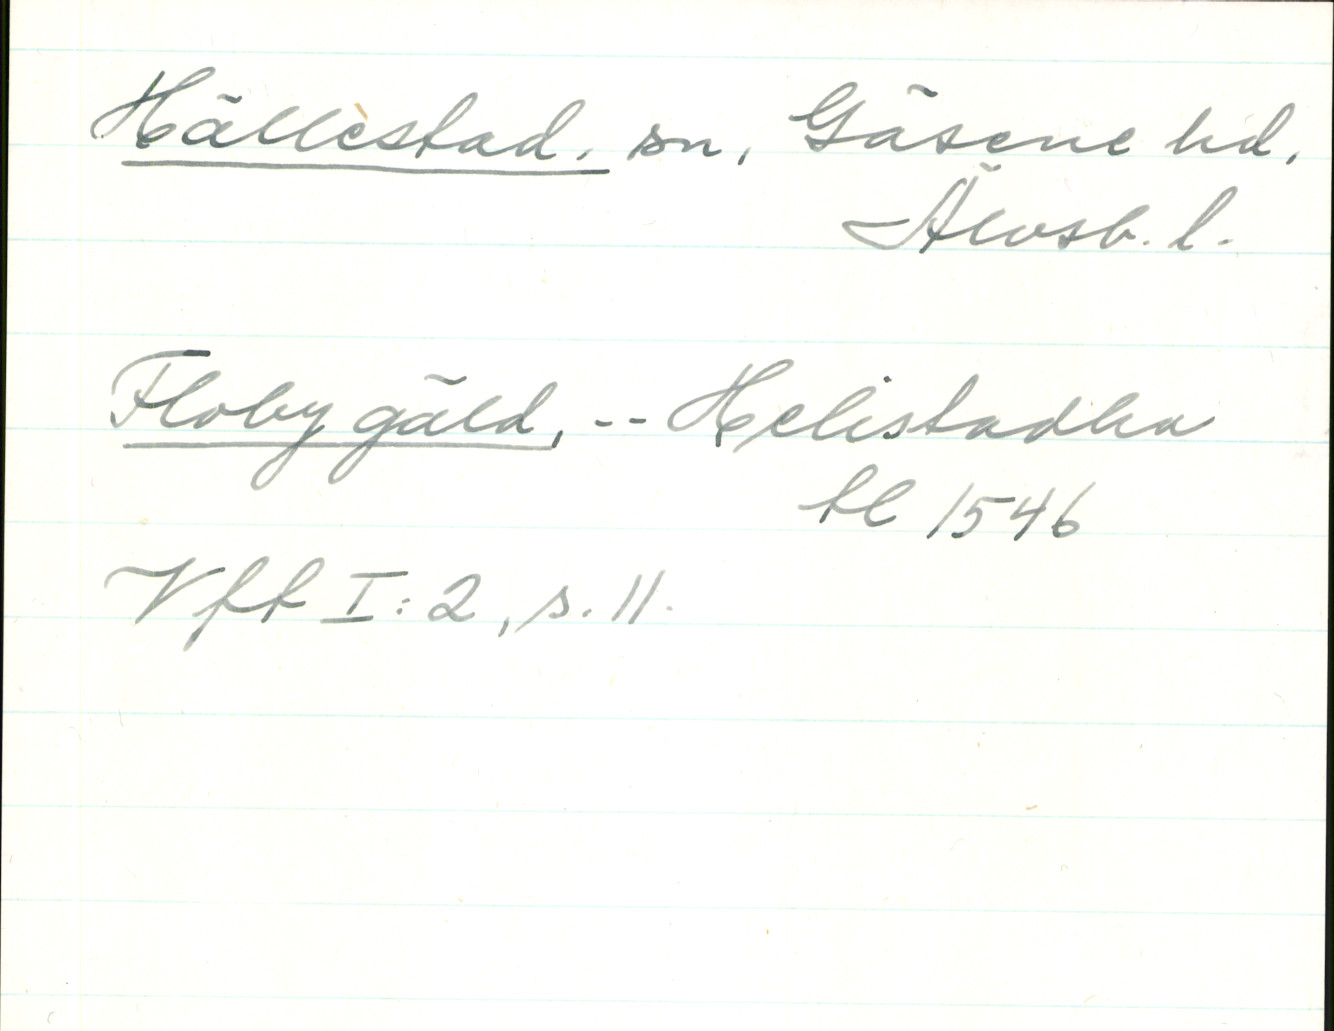 Hällestad. sn, Gäsene hd,
Älvsb. l.
Floby gäld, -- Helistadha
tl 1546
Vff I: 2, s. 11.